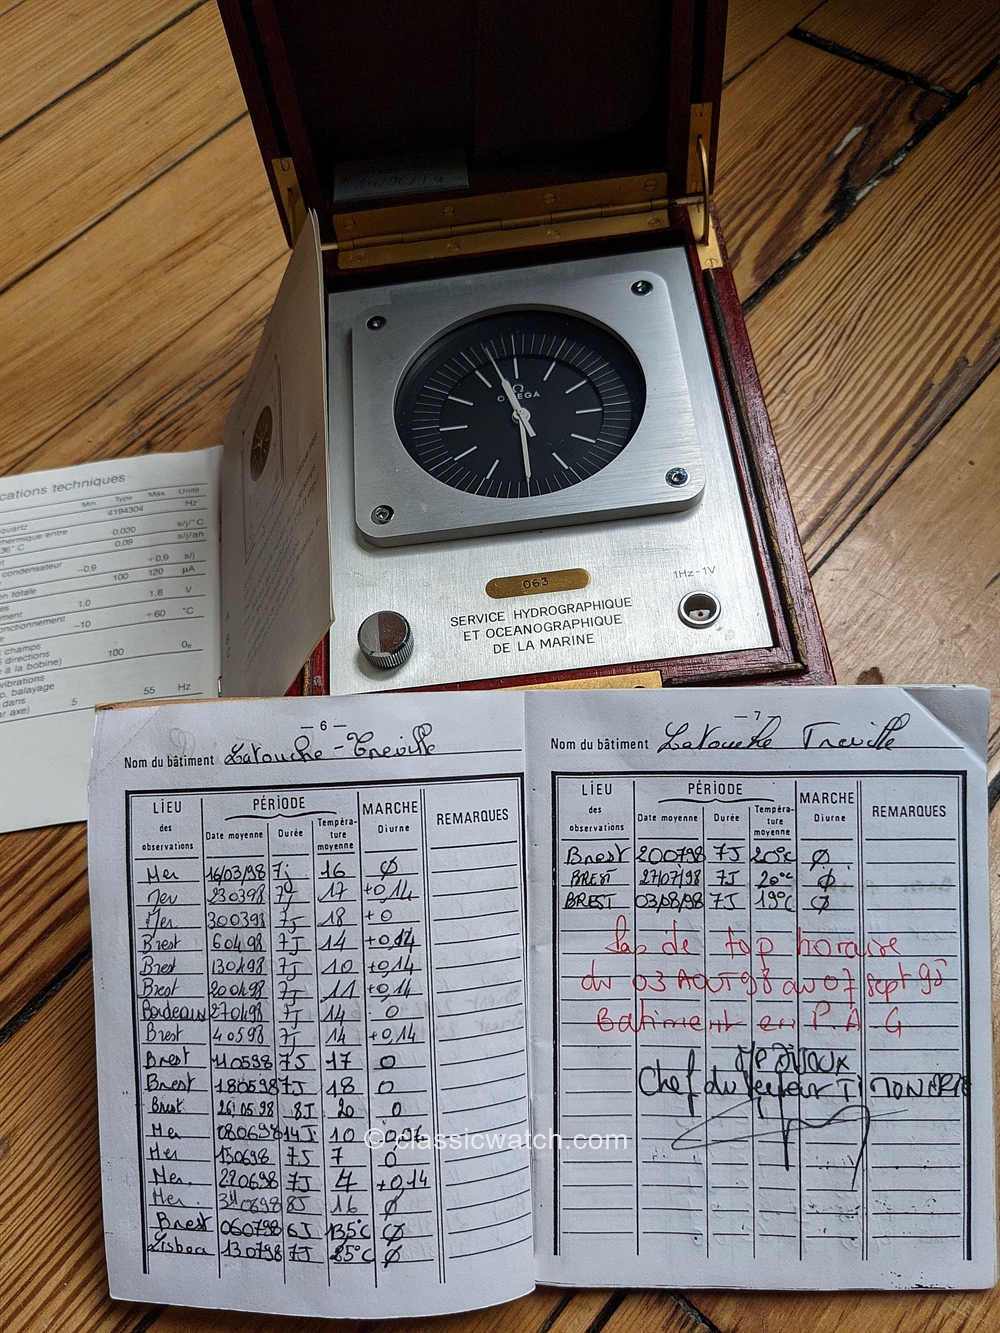 OMEGA
063
1Hz-1V
SERVICE HYDROGRAPHIQUE
ET OCEANOGRAPHIQUE
DE LA MARINE
cations techniques
Min Type Max Unité
quartz 4194304 Hz
thermique entre -0,020 s/j/°C
36°C 0,09 s/j/an
condensateur -0,9 +0,9 s/j
en totale 100 120 µA
1,0 1,8 V
onctionnement -10 +60 °C
champs
directions
à la bobine) 100 Oe
vibrations
p. balayage
dans 5 55 Hz
ar axe)
— 6 —
Nom du bâtiment Latouche-Treville
LIEU des observations PÉRIODE Date moyenne Durée Température moyenne MARCHE Diurne REMARQUES
Mer 16/03/98 7j 16 Ø
Mer 230398 7J 17 +0,14
Mer 300398 7J 18 +0
Brest 60498 7J 14 +0,14
Brest 130498 7J 10 +0,14
Brest 200498 7J 11 +0,14
Bordeaux 270498 7J 14 0
Brest 40598 7J 14 +0,14
Brest 110598 7J 17 0
Brest 180598 7J 18 0
Brest 26 05 98 8J 20 0
Mer 080698 14J 10
Mer 150698 7J 7 0
Mer. 220698 7J 4 +0,14
Mer. 300698 8J 16 Ø
Brest 060798 6J 135°C Ø
Lisboa 130798 7J 85°C Ø
— 7
Nom du bâtiment Latouche Treville
LIEU des observations PÉRIODE Date moyenne Durée Température moyenne MARCHE Diurne REMARQUES
Brest 200798 7J 20°C Ø
BREST 27/07/98 7J 20°C Ø
BREST 03/08/98 7J 19°C Ø
Pas de top horaire
du 03 AOUT 98 au 07 sept 98
Batiment en P.A.G
Chef du secteur
© classicwatch.com